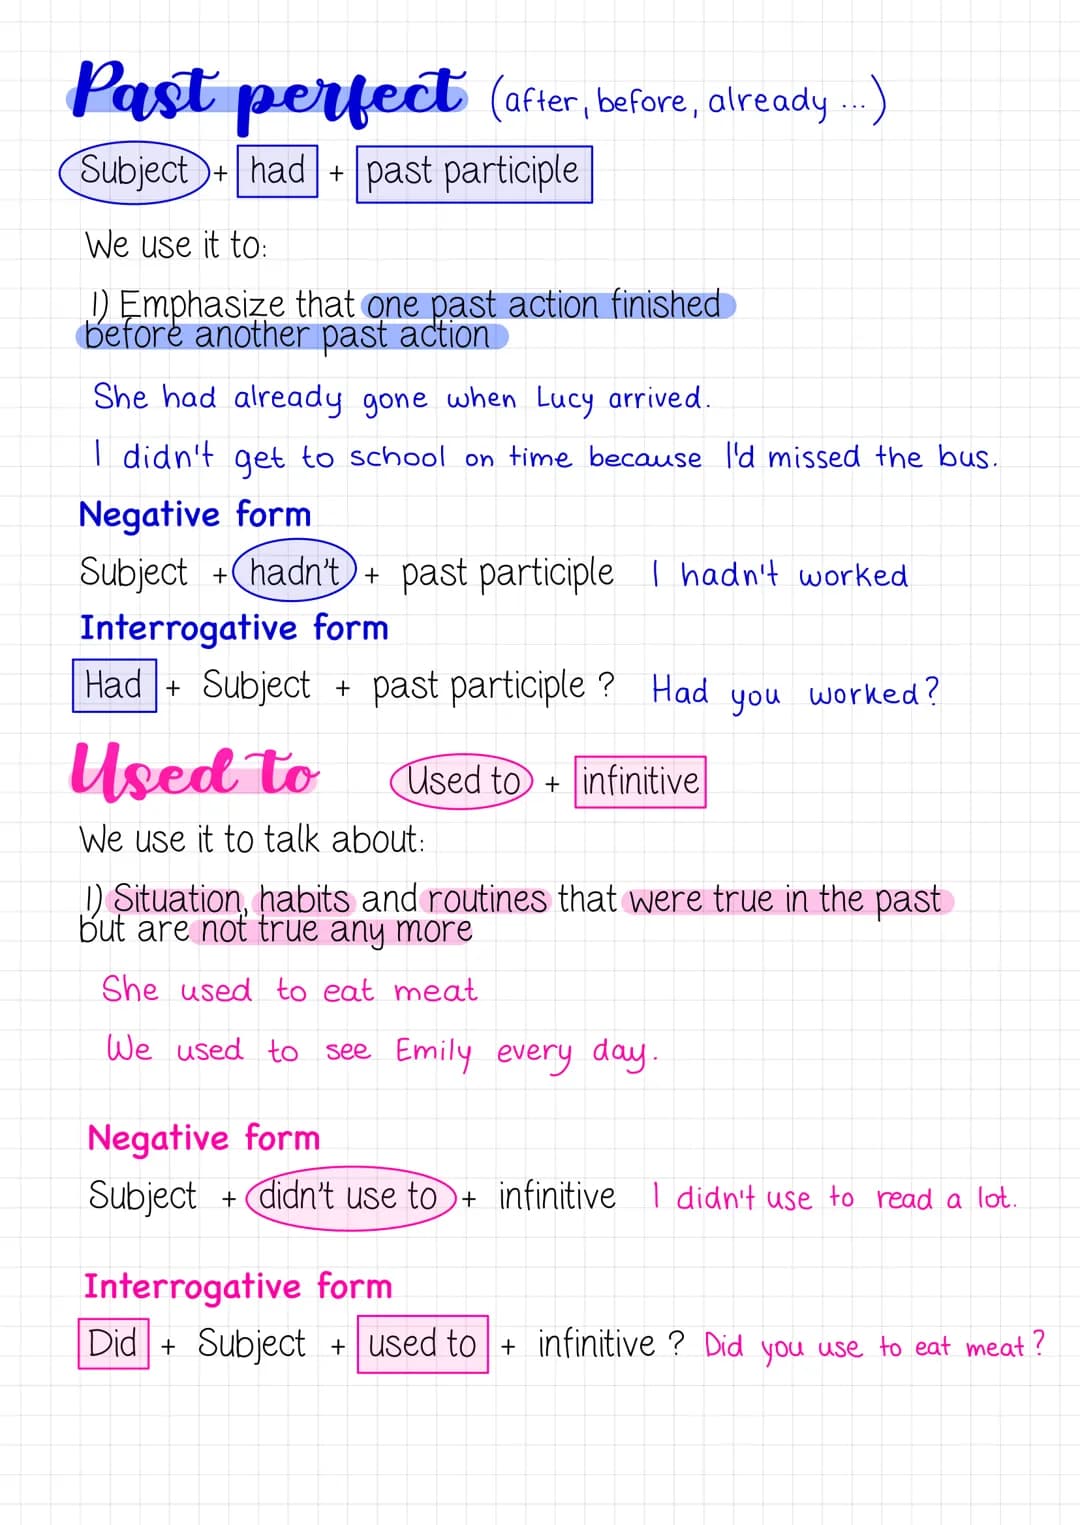 Past perfect (after, before, already ...)
Subject + had + past participle
We use it to:
1) Emphasize that one past action finished
before another past action
She had already gone when Lucy arrived.
I didn't get to school on time because I'd missed the bus.
Negative form
Subject + hadn't + past participle I hadn't worked
Interrogative form
Had + Subject + past participle ? Had you worked?
Used to Used to + infinitive
We use it to talk about:
1) Situation, habits and routines that were true in the past
but are not true any more
She used to eat meat
We used to see Emily every day.
Negative form
Subject + didn't use to + infinitive I didn't use to read a lot.
Interrogative form
Did + Subject + used to + infinitive ? Did you use to eat meat?